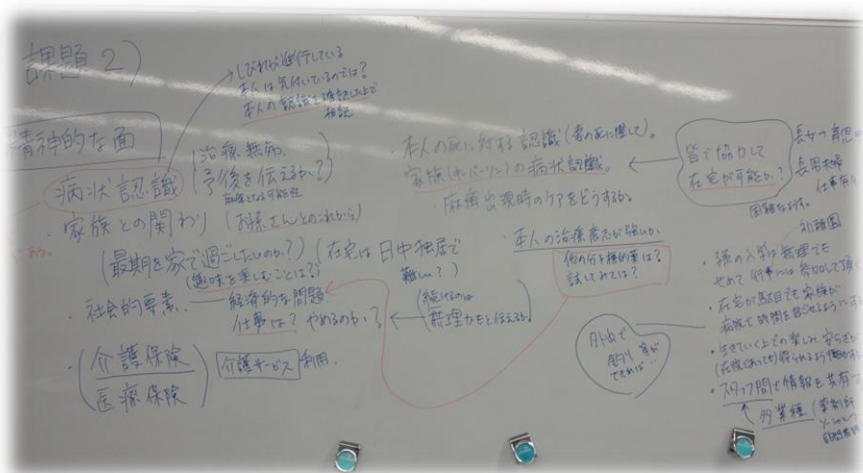 課題2)
しびれが進行している
本人は気付いているのでは?
本人の認識を確認した上で
相談
精神的な面
病状認識
(治療無効、
予後を伝えるか?)
麻痺となる可能性
・家族との関わり (お孫さんとのこれから)
(最期を家で過ごしたいのか?) (在宅は日中独居で
難しい?)
(趣味を楽しむことは?)
・社会的要素
経済的な問題
仕事は?やめるのか?
(続けるのは
無理かもと伝える。
・(介護保険
医療保険)
介護サービス 利用
本人の死に対する認識(妻の死に際して)。
家族(キーパーソン)の病状認識。
・麻痺出現時のケアをどうするか。
・本人の治療意志が強いか
他の分子標的薬は?
試してみては?
皆で協力して
在宅が可能か?
長女の育児
長男夫婦
仕事有り
困難なようす。
外泊で
・孫の入学は無理でも
せめて行事には参加して頂く
・在宅が駄目でも家族が
病院で時間を過ごせるように
・生きていく上での楽しみ、安らぎが
(在院であっても)得られるよう
・スタッフ間で情報を共有
多業種(薬剤師